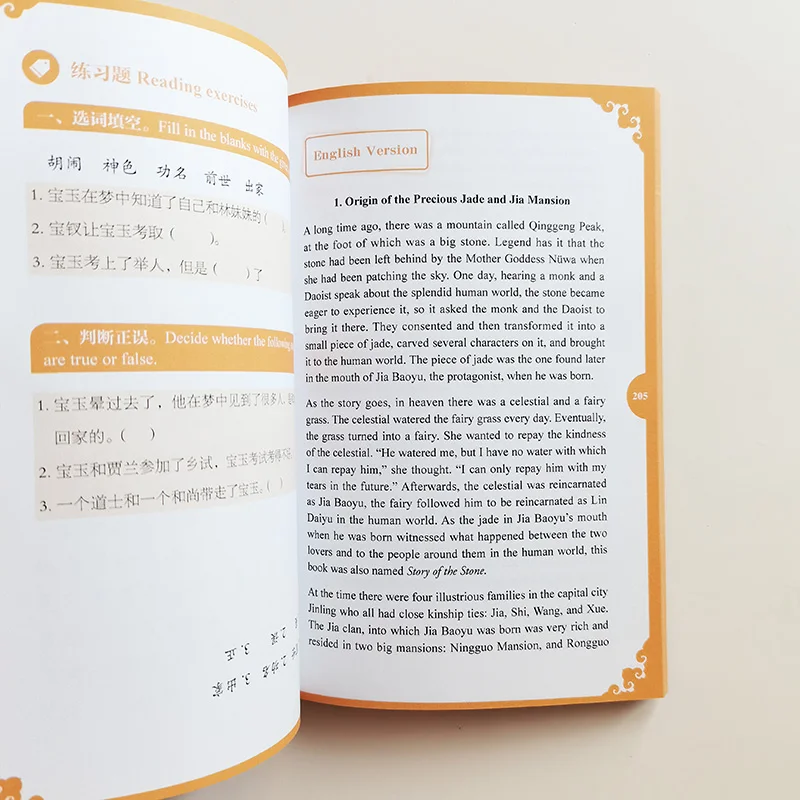 练习题 Reading exercises
一、选词填空。Fill in the blanks with the
胡闹 神色 功名 前世 出家
1. 宝玉在梦中知道了自己和林妹妹的（
2. 宝钗让宝玉考取（ ）。
3. 宝玉考上了举人，但是（ ）了
二、判断正误。Decide whether the following
are true or false.
1. 宝玉晕过去了，他在梦中见到了很多人，
回家的。（ ）
2. 宝玉和贾兰参加了乡试，宝玉考试考得不
3. 一个道士和一个和尚带走了宝玉。（ ）
2. 误 3. 正
2. 功名 3. 出家
English Version
1. Origin of the Precious Jade and Jia Mansion
A long time ago, there was a mountain called Qinggeng Peak,
at the foot of which was a big stone. Legend has it that the
stone had been left behind by the Mother Goddess Nüwa when
she had been patching the sky. One day, hearing a monk and a
Daoist speak about the splendid human world, the stone became
eager to experience it, so it asked the monk and the Daoist to
bring it there. They consented and then transformed it into a
small piece of jade, carved several characters on it, and brought
it to the human world. The piece of jade was the one found later
in the mouth of Jia Baoyu, the protagonist, when he was born.
205
As the story goes, in heaven there was a celestial and a fairy
grass. The celestial watered the fairy grass every day. Eventually,
the grass turned into a fairy. She wanted to repay the kindness
of the celestial. “He watered me, but I have no water with which
I can repay him,” she thought. “I can only repay him with my
tears in the future.” Afterwards, the celestial was reincarnated
as Jia Baoyu, the fairy followed him to be reincarnated as Lin
Daiyu in the human world. As the jade in Jia Baoyu’s mouth
when he was born witnessed what happened between the two
lovers and to the people around them in the human world, this
book was also named Story of the Stone.
At the time there were four illustrious families in the capital city
Jinling who all had close kinship ties: Jia, Shi, Wang, and Xue.
The Jia clan, into which Jia Baoyu was born was very rich and
resided in two big mansions: Ningguo Mansion, and Rongguo